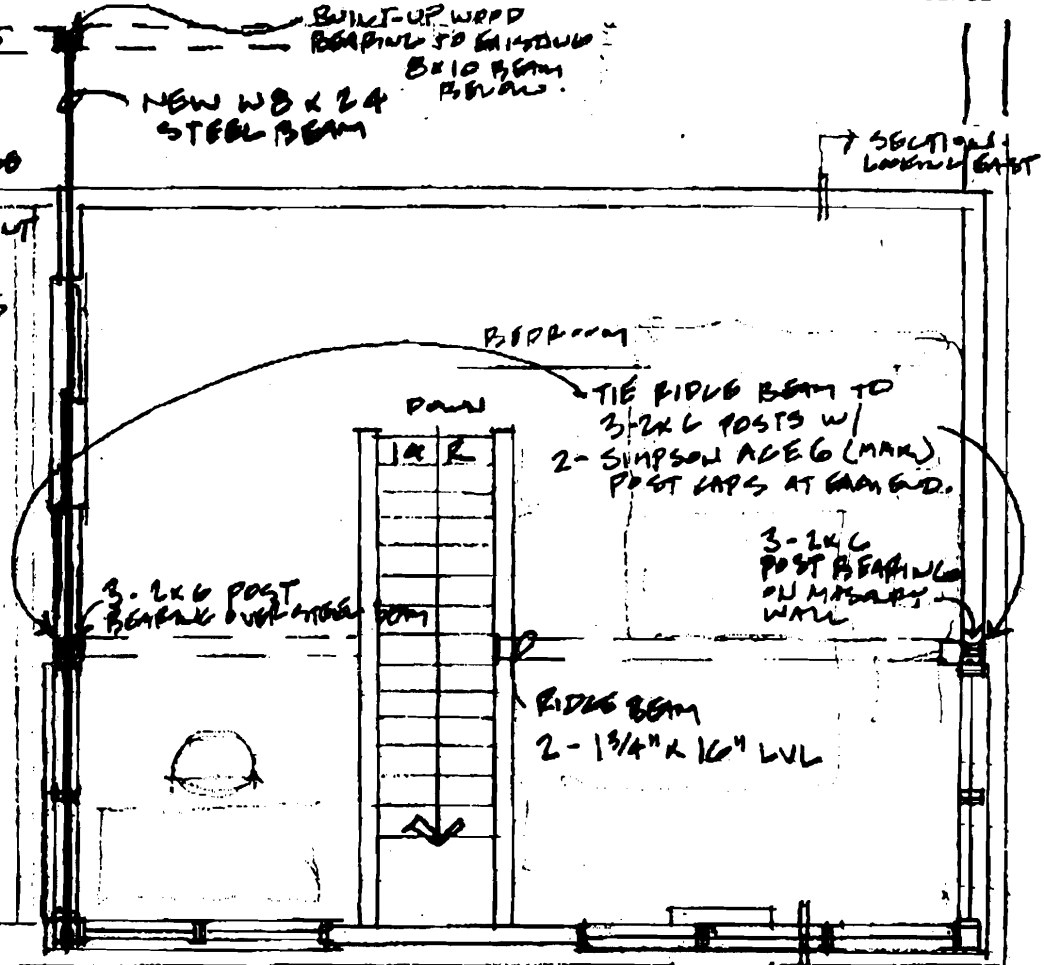 BUILT-UP WOOD
BEARING TO EXISTING
8x10 BEAM
BELOW.
NEW W8 x 24
STEEL BEAM
SECTION
LOOKING EAST
BEDROOM
TIE RIDGE BEAM TO
3-2x6 POSTS W/
2- SIMPSON ACE6 (MAX)
POST CAPS AT EACH END.
DOWN
14 R
3-2x6
POST BEARING
ON MASONRY
WALL
3-2x6 POST
BEARING OVER STEEL BEAM
RIDGE BEAM
2-1 3/4" x 16" LVL